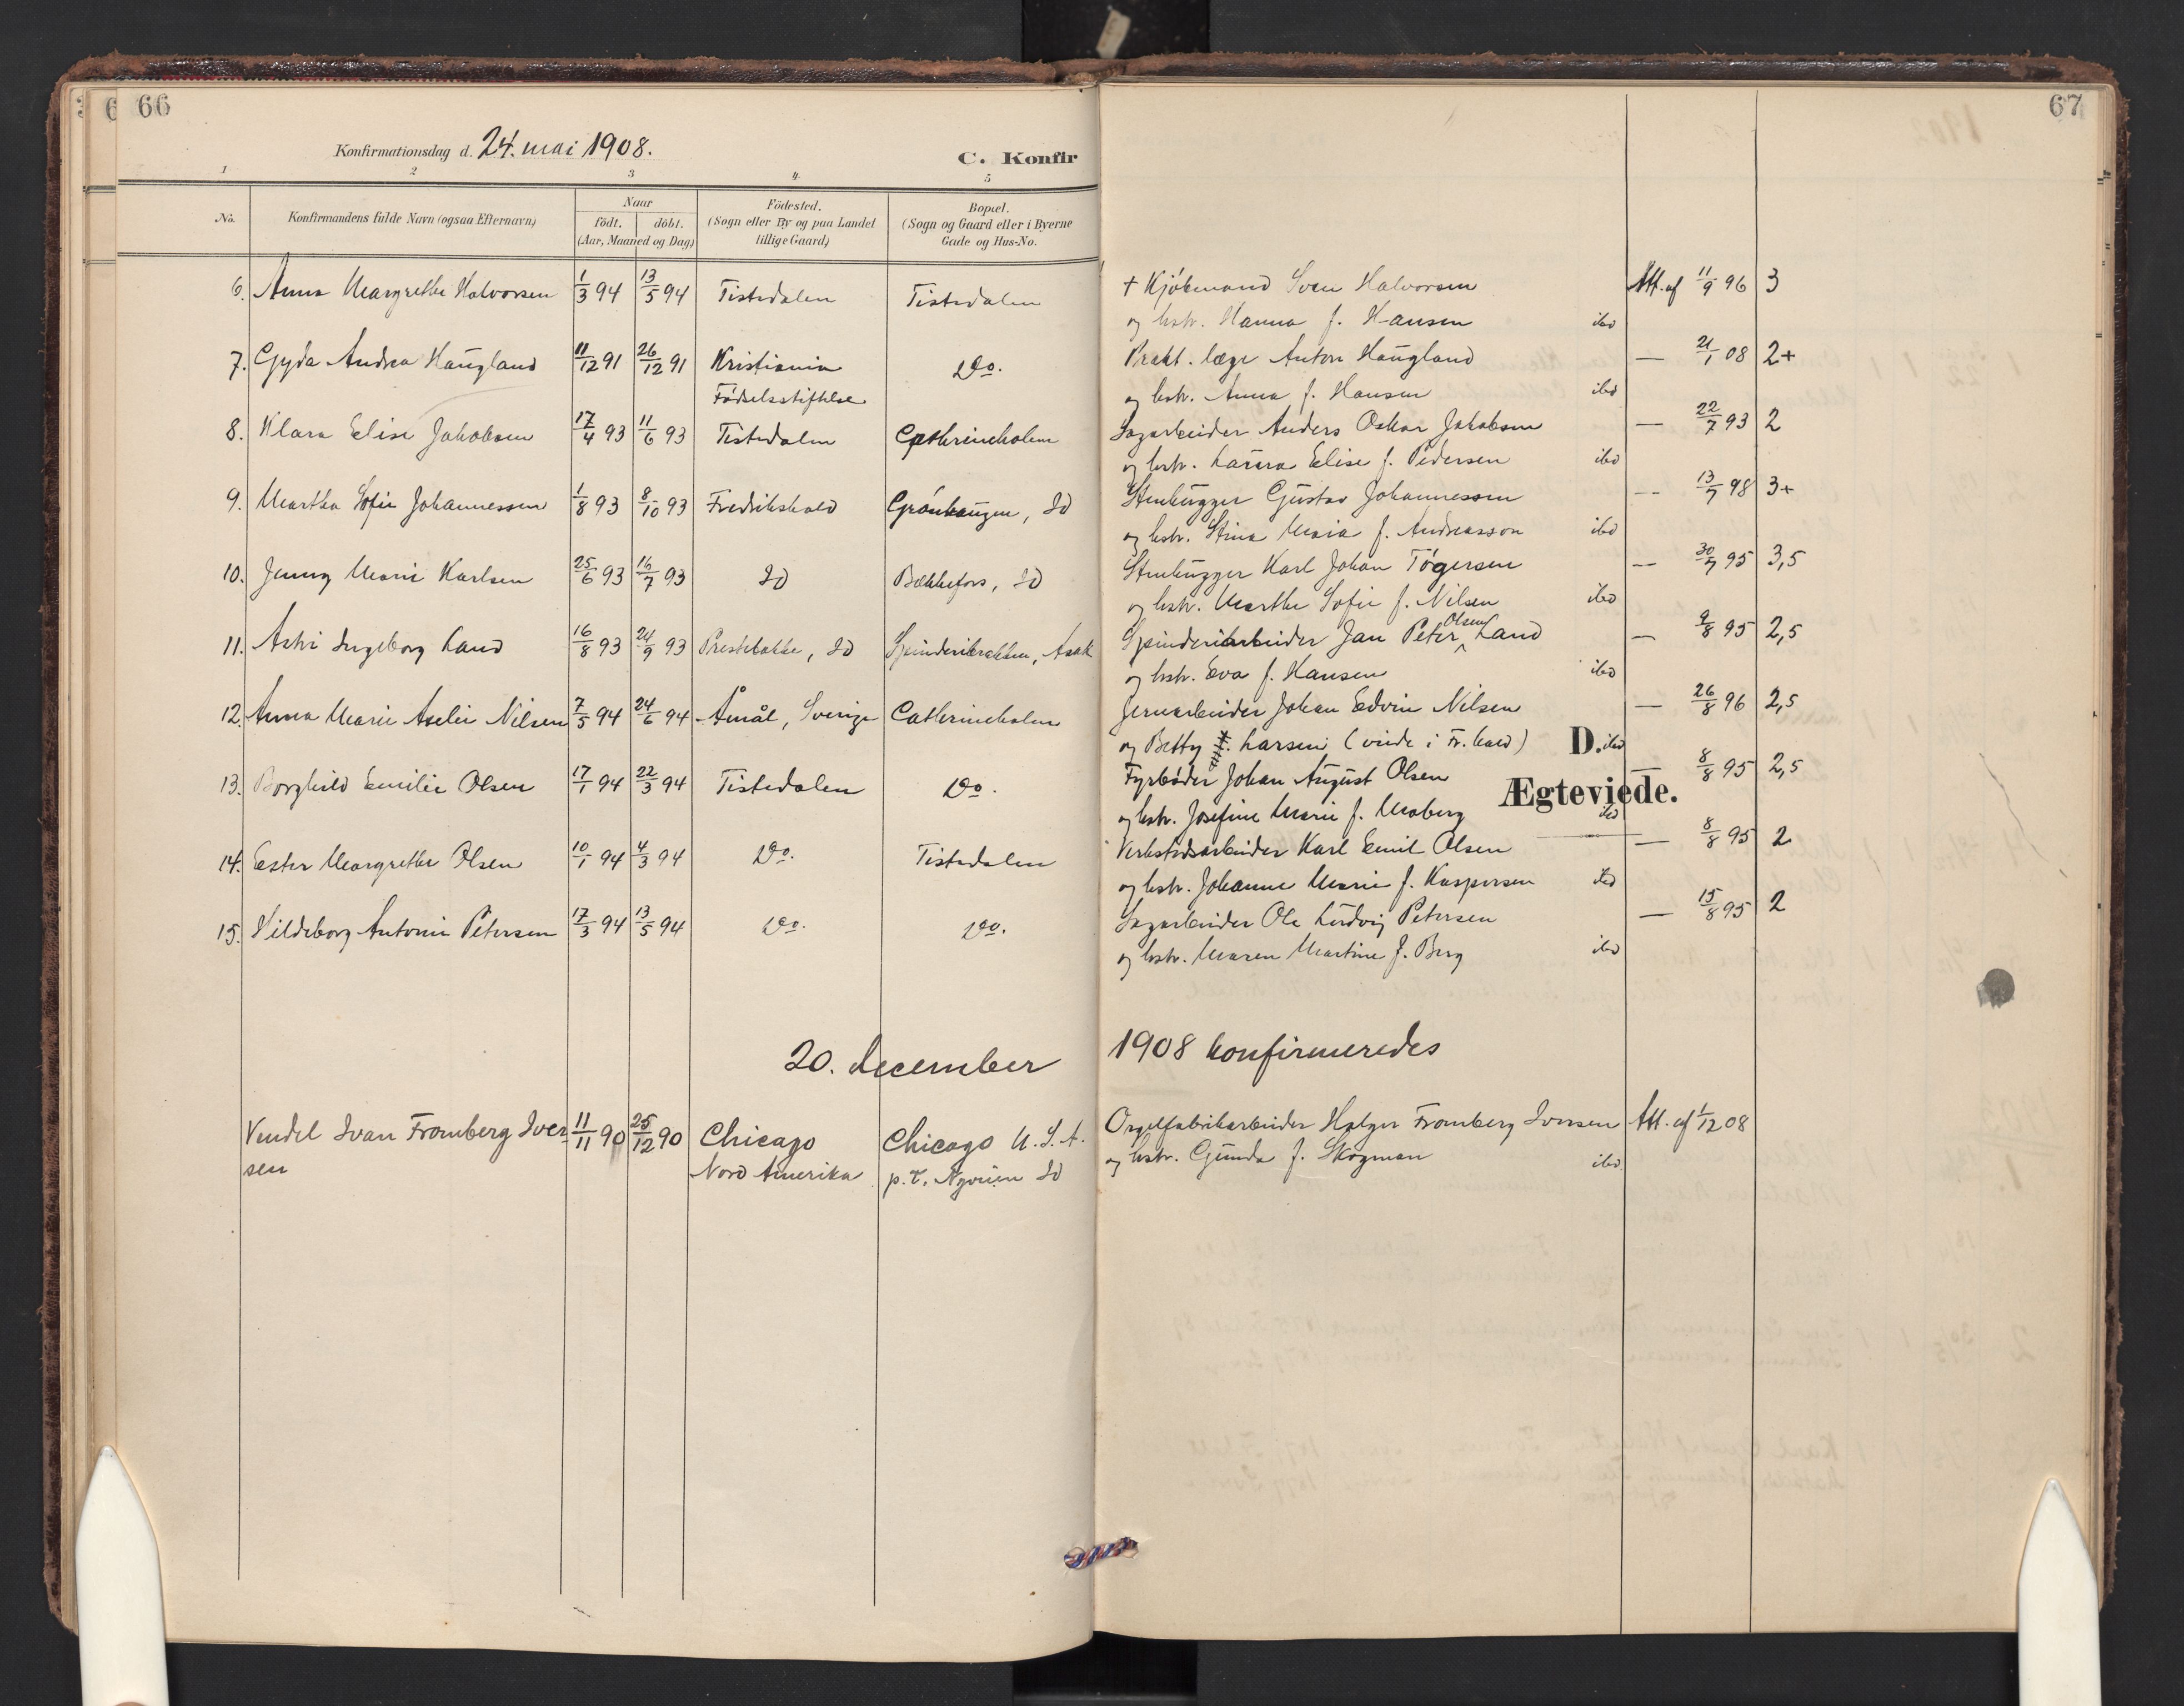 66
Konfirmationsdag d. 24. mai 1908.
C. Konfir
1 2 3 4 5
No. Konfirmandens fulde Navn (ogsaa Efternavn) Naar födt. döbt. (Aar, Maaned og Dag) Födested. (Sogn eller By og paa Landet tillige Gaard) Bopæl. (Sogn og Gaard eller i Byerne Gade og Hus-No.
6. Anna Margrethe Halvorsen 1/3 94 13/5 94 Tistedalen Tistedalen
7. Gyda Andrea Haugland 11/12 91 26/12 91 Kristiania Do.
Födselsstiftelse
8. Klara Elise Jakobsen 17/4 93 11/6 93 Tistedalen Cathrineholm
9. Martha Sofie Johannessen 1/8 93 8/10 93 Fredrikshald Grönhaugen, Id
10. Jenny Marie Karlsen 25/6 93 16/7 93 Id Bækkefors, Id
11. Astri Ingeborg Land 16/8 93 24/9 93 Prestebakke, Id Spinderibrakken, Asak
12. Anna Marie Axelie Nilsen 7/5 94 24/6 94 Åmål, Sverige Cathrineholm
13. Borghild Emilie Olsen 17/1 94 22/3 94 Tistedalen Do.
14. Ester Margrethe Olsen 10/1 94 4/3 94 Do. Tistedalen
15. Hildeborg Antonie Petersen 17/3 94 13/5 94 Do. Do.
20. december
Vendel Ivan Fromberg Iver 11/11 90 25/12 90 Chicago Chicago U.S.A.
sen Nord Amerika p.t. Nyveien Id
67
† Kjöbmand Sven Halvorsen Att. af 11/9 96 3
og hstr. Hanna f. Hansen ibd
Prakt. læge Anton Haugland — 21/1 08 2+
og hstr. Anna f. Hansen ibd
Sagarbeider Anders Oskar Jakobsen — 22/7 93 2
og hstr. Laura Elise f. Pedersen ibd
Stenhugger Gustav Johannessen — 13/7 98 3+
og hstr. Stina Maia f. Andreasson ibd
Stenhugger Karl Johan Tögersen — 30/7 95 3,5
og hstr. Marthe Sofie f. Nilsen ibd
Olsen
Spinderiarbeider Jan Peter Land — 9/8 95 2,5
og hstr. Eva f. Hansen ibd
Jernarbeider Johan Edvin Nilsen — 26/8 96 2,5
og Betty f. Larsen (viede i Fr. hald) ibd
D.
Fyrböder Johan August Olsen — 8/8 95 2,5
Ægteviede.
og hstr. Josefine Marie f. Moberg ibd
Verkstedsarbeider Karl Emil Olsen — 8/8 95 2
og hstr. Johanne Marie f. Kaspersen ibd
Sagarbeider Ole Ludvig Petersen — 15/8 95 2
og hstr. Maren Martine f. Berg ibd
1908 konfirmeredes
Orgelfabrikarbeider Holger Fromberg Iversen Att. af 1/12 08
og hstr. Gunda f. Skogman ibd.